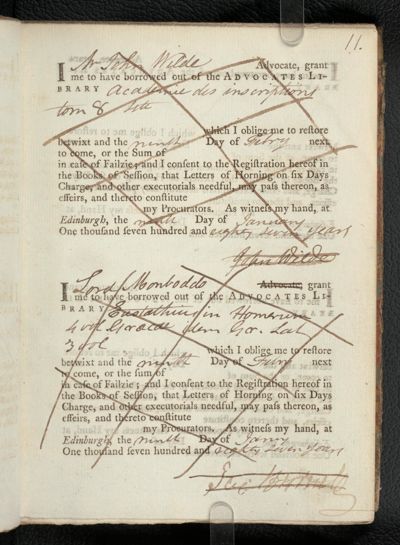 11.
I Mr John Wilde Advocate, grant
me to have borrowed out of the ADVOCATES LI-
BRARY Academie des inscriptions
tom 8 4to
which I oblige me to restore
betwixt and the ninth Day of Febry next,
to come, or the Sum of
in case of Failzie; and I consent to the Registration hereof in
the Books of Session, that Letters of Horning on six Days
Charge, and other executorials needful, may pass thereon, as
effeirs, and thereto constitute
my Procurators. As witness my hand, at
Edinburgh, the ninth Day of January
One thousand seven hundred and eighty seven years
John Wilde
I Lord Monboddo Advocate, grant
me to have borrowed out of the ADVOCATES LI-
BRARY Eustathius in Homerum
4 voll Graece
3 voll
which I oblige me to restore
betwixt and the ninth Day of next
to come, or the Sum of
in case of Failzie; and I consent to the Registration hereof in
the Books of Session, that Letters of Horning on six Days
Charge, and other executorials needful, may pass thereon, as
effeirs, and thereto constitute
my Procurators. As witness my hand, at
Edinburgh, the ninth Day of Janry
One thousand seven hundred and eighty seven years